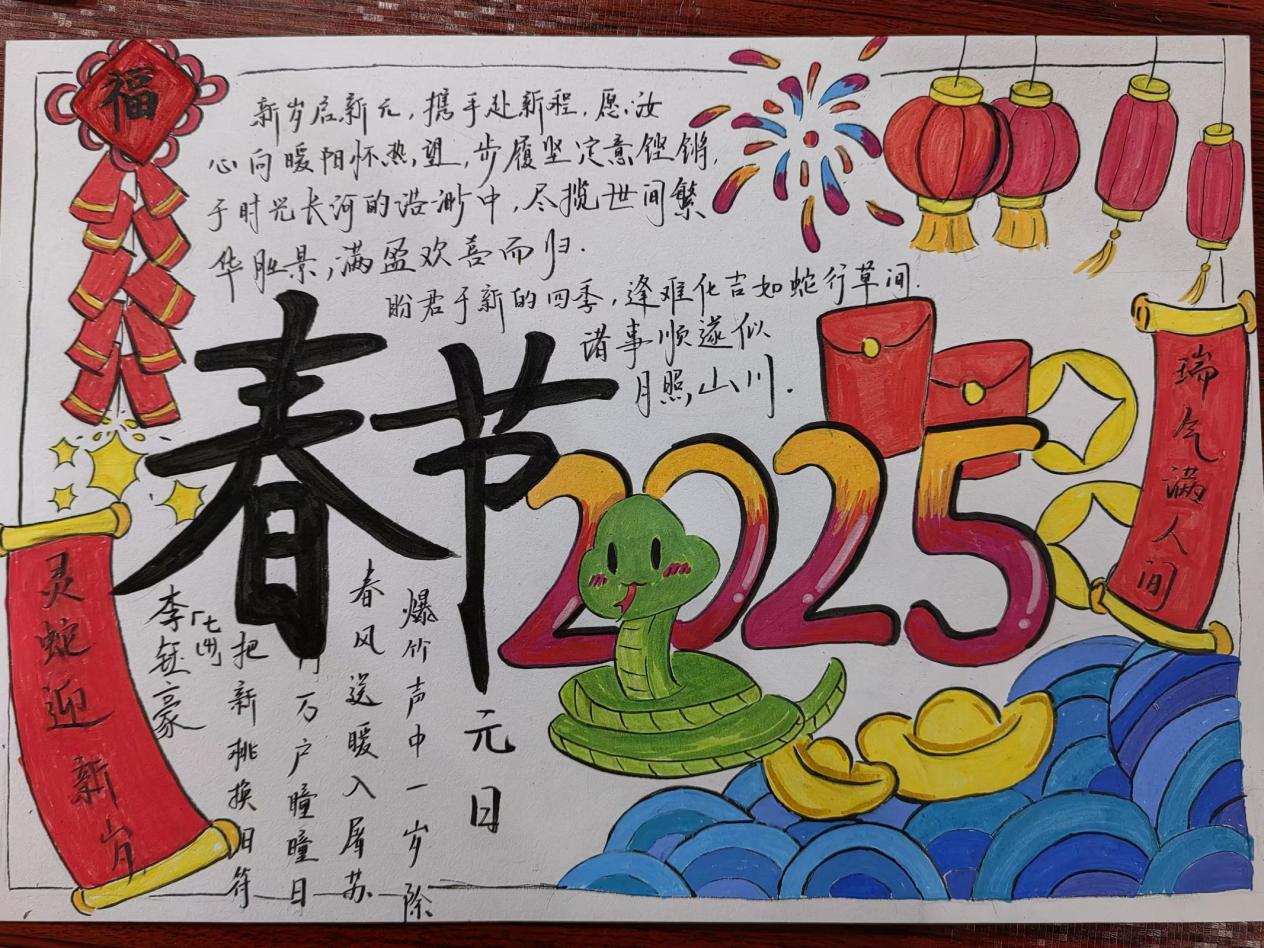 福
新岁启新元，携手赴新程，愿汝
心向暖阳怀热望，步履坚定意铿锵，
于时光长河的浩渺中，尽揽世间繁
华胜景，满盈欢喜而归.
盼君于新的四季，逢难化吉如蛇行草间.
诸事顺遂似
月照山川.
春节
2025
瑞气满人间
灵蛇迎新岁
元日
爆竹声中一岁除
春风送暖入屠苏
门万户曈曈日
把新桃换旧符
李钰豪